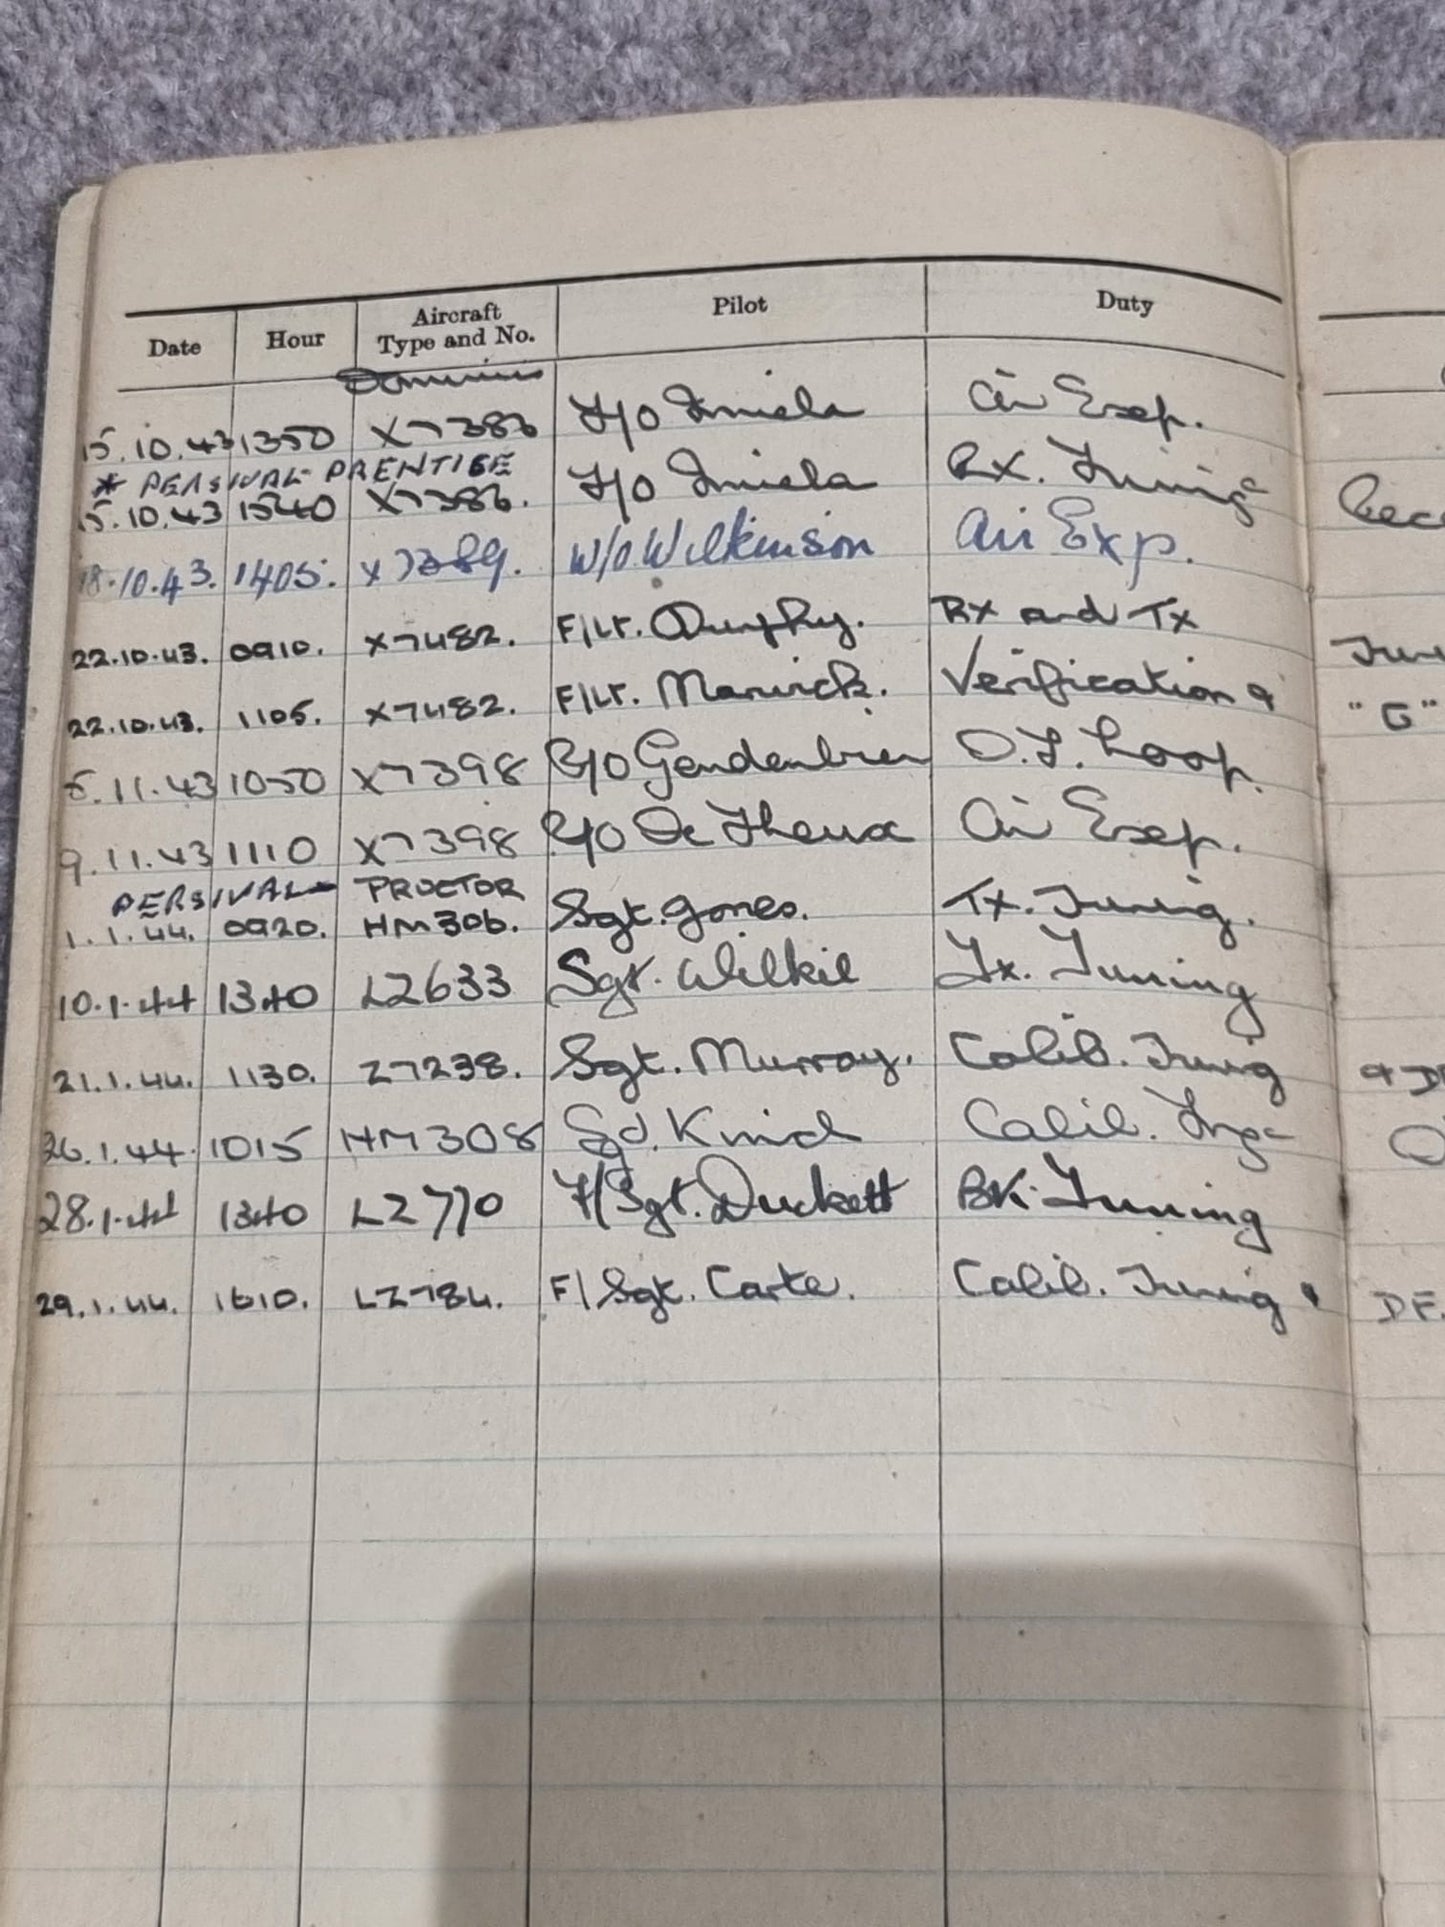 Date Hour Aircraft Type and No. Pilot Duty
Dominie
15.10.43 1350 X7386 F/O Air Exp.
* PERSIVAL PRENTISE
15.10.43 1540 X7386. F/O RX. Tuning
18.10.43. 1405. X7389. W/O Wilkinson Air Exp.
22.10.43. 0910. X7482. F/Lt. Dunphy. RX and TX
22.10.43. 1105. X7482. F/Lt. Marwick. Verification &
" G "
5.11.43 1050 X7398 P/O Gendenbien D.F. Loop.
9.11.43 1110 X7398 P/O De Theux Air Exp.
PERSIVAL PROCTOR
1.1.44. 0920. HM306. Sgt. Jones. TX. Tuning.
10.1.44 1340 L2633 Sgt. Wilkie Tx. Tuning
21.1.44. 1130. Z7238. Sgt. Murray. Calib. Tuning
& D
26.1.44. 1015 HM308 Calib. Tng
28.1.44 1340 LZ770 F/Sgt. Duckett BK. Tuning
29.1.44. 1610. LZ784. F/Sgt. Carte. Calib. Tuning &
DF.